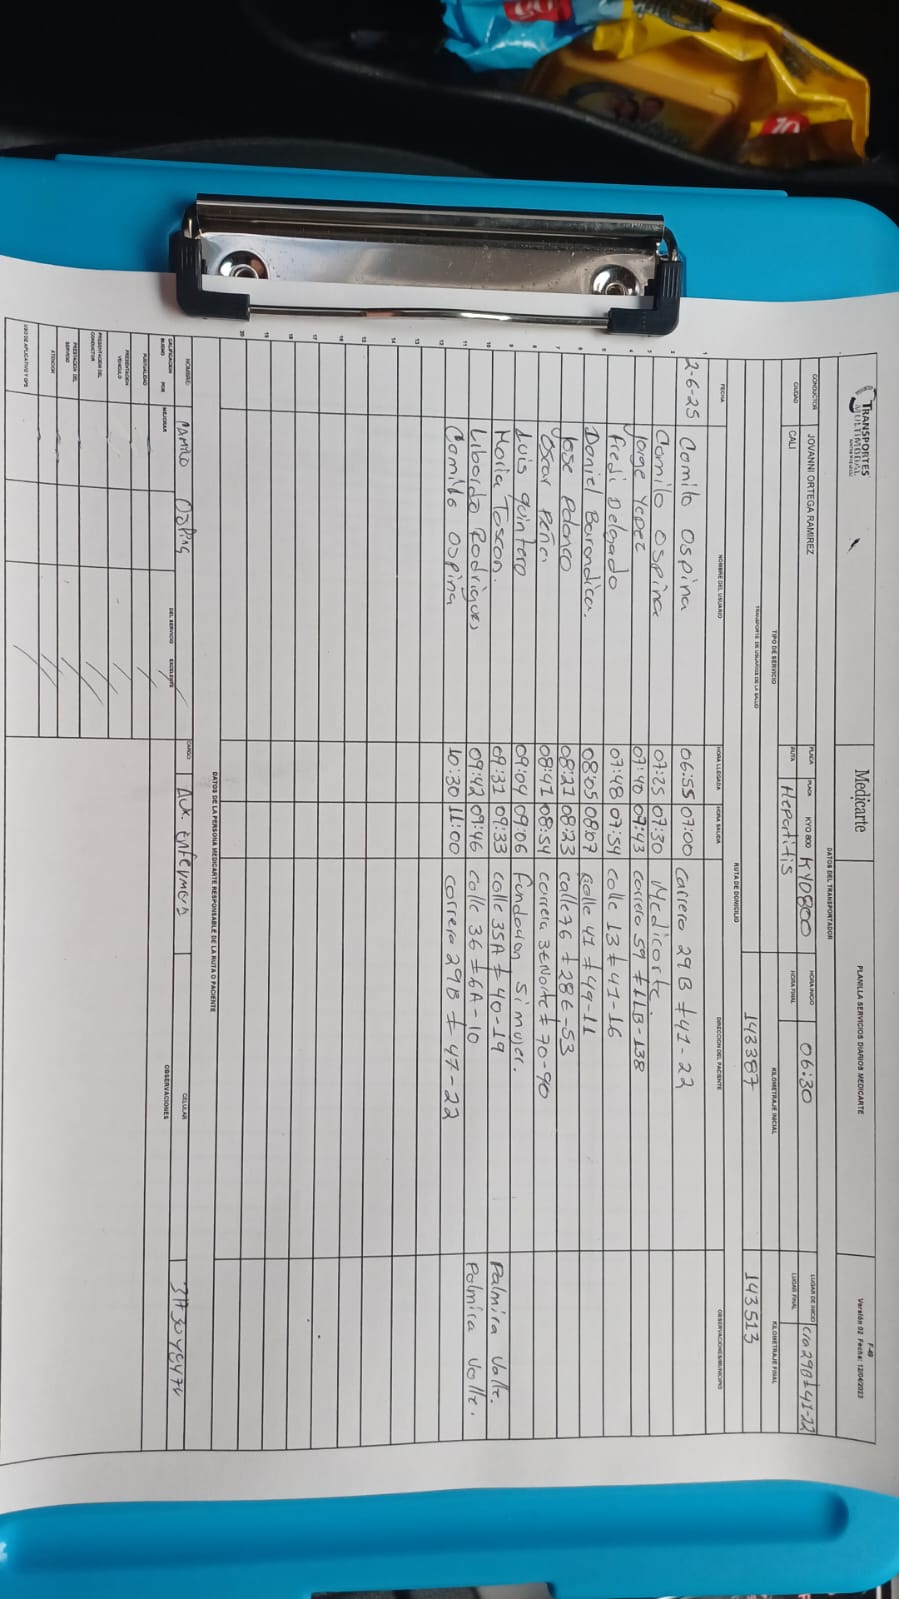 TRANSPORTES
MULTIMODAL
Medicarte
PLANILLA SERVICIOS DIARIOS MEDICARTE
F-49
Versión 02 Fecha: 12/04/2023
DATOS DEL TRANSPORTADOR
CONDUCTOR JOVANNI ORTEGA RAMIREZ PLACA KYO 800 KYO800 HORA INICIO 06:30 LUGAR DE INICIO cra 29B # 41-22
CIUDAD CALI RUTA Hepatitis HORA FINAL LUGAR FINAL
TIPO DE SERVICIO KILOMETRAJE INICIAL KILOMETRAJE FINAL
TRANSPORTE DE USUARIOS DE LA SALUD 143387 143513
RUTA DE DOMICILIO
FECHA NOMBRE DEL USUARIO HORA LLEGADA HORA SALIDA DIRECCION DEL PACIENTE OBSERVACIONES/MUNICIPIO
1 2-6-25 Camilo Ospina 06:55 07:00 carrera 29B # 41-22
2 Camilo Ospina 07:25 07:30 Medicarte.
3 Jorge Yepez 07:40 07:43 carrera 59 # 11B-138
4 Fredi Delgado 07:48 07:54 calle 13 # 41-16
5 Daniel Barandica. 08:05 08:07 calle 41 # 49-11
6 Jose Polanco 08:21 08:23 calle 76 # 28E-53
7 Oscar Peña. 08:41 08:54 carrera 3ENorte # 70-90
8 Luis quintero 09:04 09:06 fundacion simujer.
9 Maria Tascon. 09:31 09:33 calle 35A # 40-19 Palmira Valle.
10 Libardo Rodrigues 09:42 09:46 calle 36 # 6A-10 Palmira Valle.
11 Camilo Ospina 10:30 11:00 carrera 29B # 41-22
12
13
14
15
16
17
18
19
20
DATOS DE LA PERSONA MEDICARTE RESPONSABLE DE LA RUTA O PACIENTE
NOMBRE: CAMILO OSPINA CARGO AUX. Enfermería CELULAR
CALIFICACION DEL SERVICIO OBSERVACIONES
BUENO POR MEJORAR EXCELENTE
PUNTUALIDAD
PRESENTACION VEHICULO
PRESENTACION DEL CONDUCTOR
PRESTACION DEL SERVICIO
ATENCION
USO DE APLICATIVO Y GPS